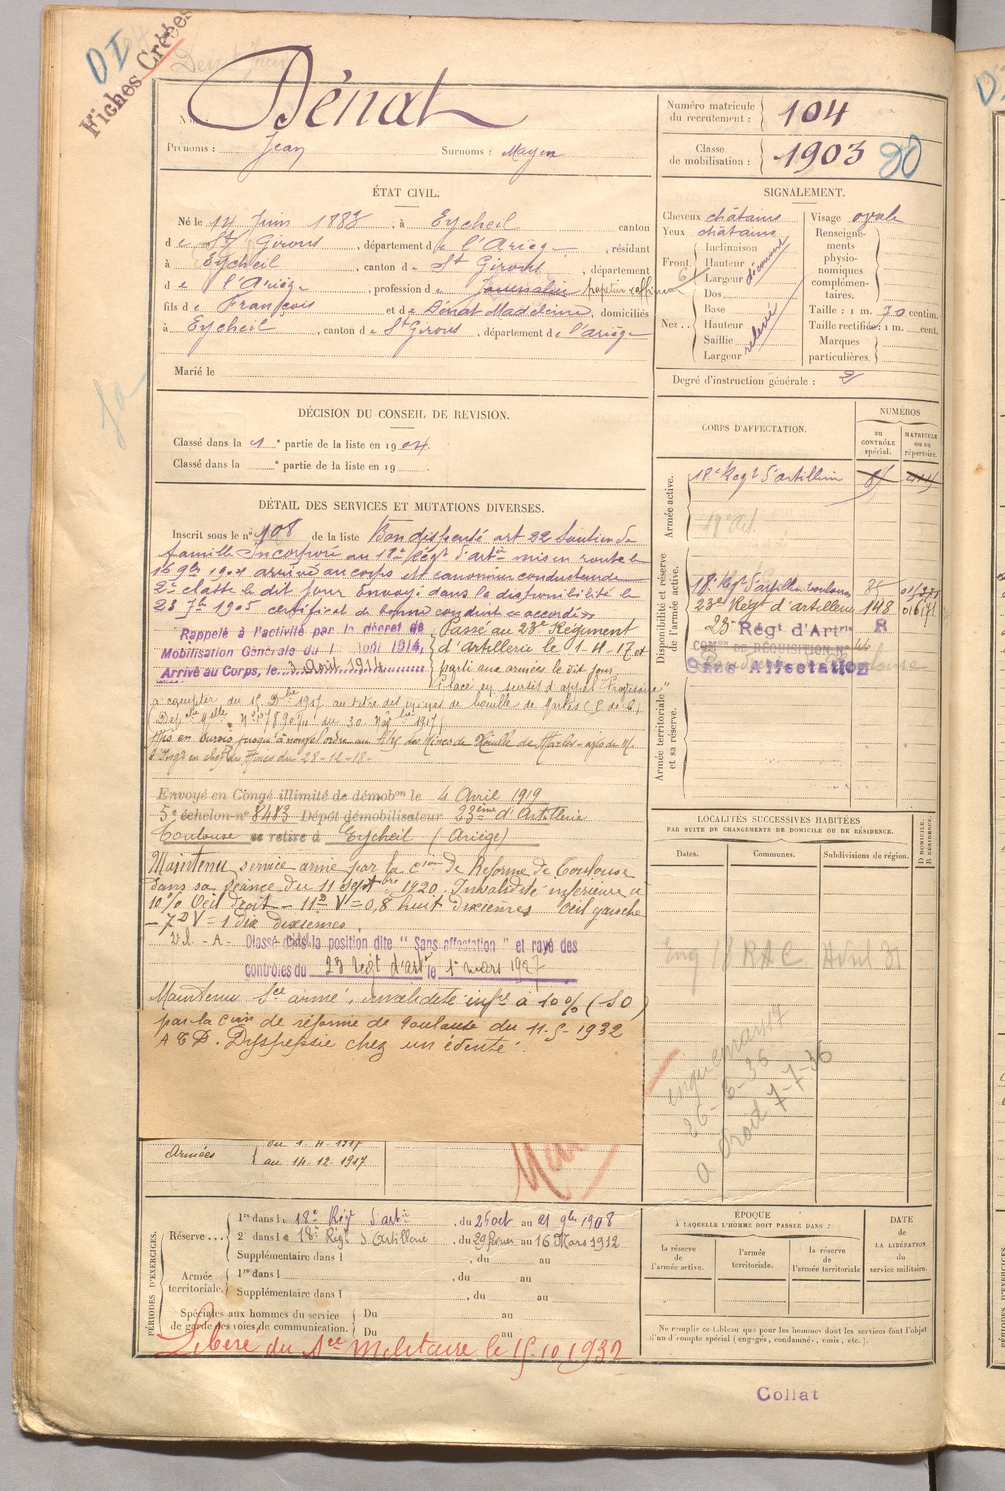 DI
Fiches Créées
Dénat
Nom :
Prénoms : Jean Surnoms : Mayen
Numéro matricule du recrutement : 104
Classe de mobilisation : 1903 20
ÉTAT CIVIL.
Né le 14 Juin 1883, à Eycheil canton
de St Girons, département de l'Ariège, résidant
à Eycheil, canton de St Girons, département
de l'Ariège, profession de Journalier papetier
fils de François et de Dénat Madeleine, domiciliés
à Eycheil, canton de St Girons, département de l'Ariège
Marié le
SIGNALEMENT.
Cheveux châtains
Yeux châtains
Front Inclinaison
Hauteur
Largeur découvert
Nez Dos
Base
Hauteur
Saillie
Largeur relevé
Visage ovale
Renseignements physionomiques complémentaires.
Taille : 1 m. 70 centim.
Taille rectifiée : 1 m. cent.
Marques particulières.
Degré d'instruction générale : 2
DÉCISION DU CONSEIL DE REVISION.
Classé dans la 1e partie de la liste en 1904.
Classé dans la e partie de la liste en 19
DÉTAIL DES SERVICES ET MUTATIONS DIVERSES.
Inscrit sous le n° 108 de la liste Bon dispensé art 22 Soutien de
famille Incorporé au 18e Régt d'artie mis en route le
16 9bre 1904 arrivé au corps et canonnier conducteur de
2e classe le dit jour Envoyé dans la disponibilité le
23 7bre 1905 certificat de bonne conduite accordé
Rappelé à l'activité par le décret de
Mobilisation Générale du 1 Août 1914.
Arrivé au Corps, le 3 Août 1914
Passé au 23e Régiment
d'artillerie le 1-4-17 et
parti aux armées le dit jour
Placé en sursis d'appel
à compter du 15 Dbre 1917 au titre des mines de houille de
du 30 Novbre 1917
Mis en sursis jusqu'à nouvel ordre au titre des Mines de Houille de
en chef des Mines du 28-12-18-
Envoyé en Congé illimité de démobon le 4 Avril 1919
5e échelon n° 8483 Dépôt démobilisateur 23ème d'Artillerie
Toulouse se retire à Eycheil (Ariège)
Maintenu service armé par la Cion de Réforme de Toulouse
dans sa séance du 11 Septbre 1920. Invalidité inférieure à
10% Oeil droit - V = 0,8 huit dixièmes Oeil gauche
V = 1 dix dixièmes
Classé dans la position dite "Sans affectation" et rayé des
contrôles du 23 Regt d'artie le 1er mars 1927
Maintenu Sce armé, invalidité infre à 10% (SO)
par la Cion de réforme de Toulouse du 11-5-1932
Dyspepsie chez un édenté.
CORPS D'AFFECTATION.
NUMÉROS
au contrôle spécial.
matricule ou au répertoire.
Armée active.
18e Regt d'artillerie
Disponibilité et réserve de l'armée active.
18e Regt d'artillerie Toulouse
23e Régt d'artillerie 148
23e Régt d'Artrie R
COMon DE RÉQUISITION N° 44
Sans Affectation
Armée territoriale et sa réserve.
LOCALITÉS SUCCESSIVES HABITÉES
PAR SUITE DE CHANGEMENTS DE DOMICILE OU DE RÉSIDENCE.
Dates. Communes. Subdivisions de région. D domicile. R résidence.
26-6-36
7-7-36
Armées
du 1-4-1917
au 14-12-1917
PÉRIODES D'EXERCICES.
Réserve... 1re dans le 18e Régt d'artie, du 25 oct au 21 9bre 1908
2e dans le 18e Régt d'Artillerie, du 29 février au 16 Mars 1912
Supplémentaire dans l , du au
Armée territoriale. 1re dans l , du au
Supplémentaire dans l , du au
Spéciales aux hommes du service de garde des voies de communication. Du au
Du au
Libéré du Sce Militaire le 15-10-1932
ÉPOQUE
À LAQUELLE L'HOMME DOIT PASSER DANS :
la réserve de l'armée active.
l'armée territoriale.
la réserve de l'armée territoriale
DATE de LA LIBÉRATION du service militaire.
Ne remplir ce tableau que pour les hommes dont les services font l'objet
d'un décompte spécial (engagés, condamnés, omis, etc.).
Collat